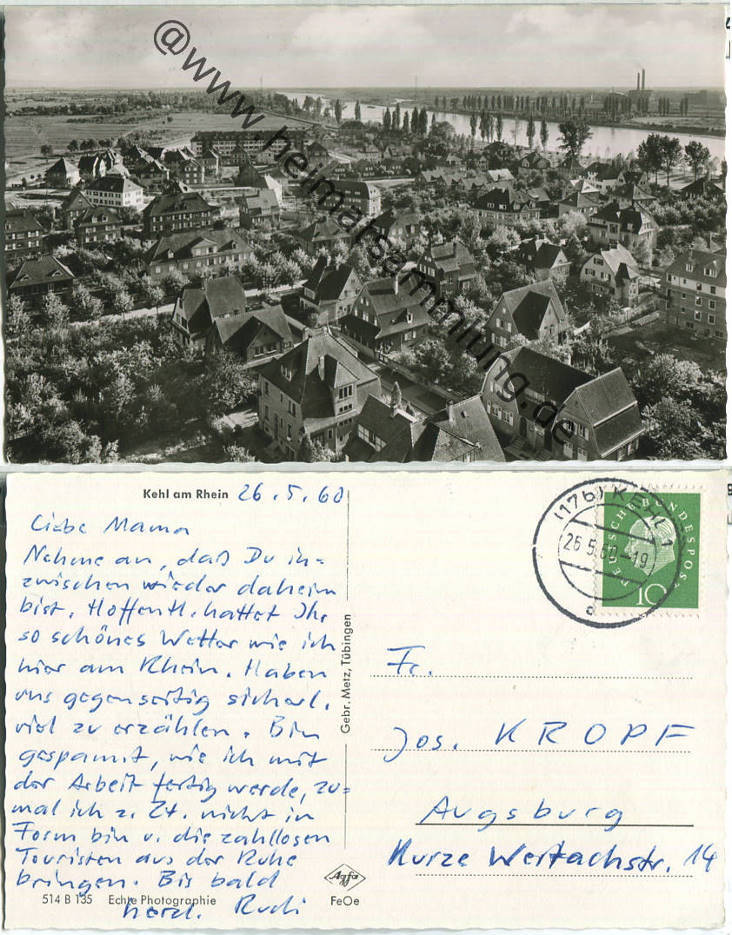 @www.heimatsammlung.de
Kehl am Rhein 26.5.60
Liebe Mama
Nehme an, daß Du in-
zwischen wieder daheim
bist. Hoffentl. hattet Ihr
so schönes Wetter wie ich
hier am Rhein. Haben
uns gegenseitig sicherl.
viel zu erzählen. Bin
gespannt, wie ich mit
der Arbeit fertig werde, zu=
mal ich z. Zt. nicht in
Form bin u. die zahllosen
Touristen aus der Ruhe
bringen. Bis bald
herzl. Rudi
514 B 135 Echte Photographie
Gebr. Metz, Tübingen
Agfa
FeOe
(17b) KEHL 1
26.5.60-19
a
DEUTSCHE BUNDESPOST
10
Fr.
Jos. KROPF
Augsburg
Kurze Wertachstr. 14